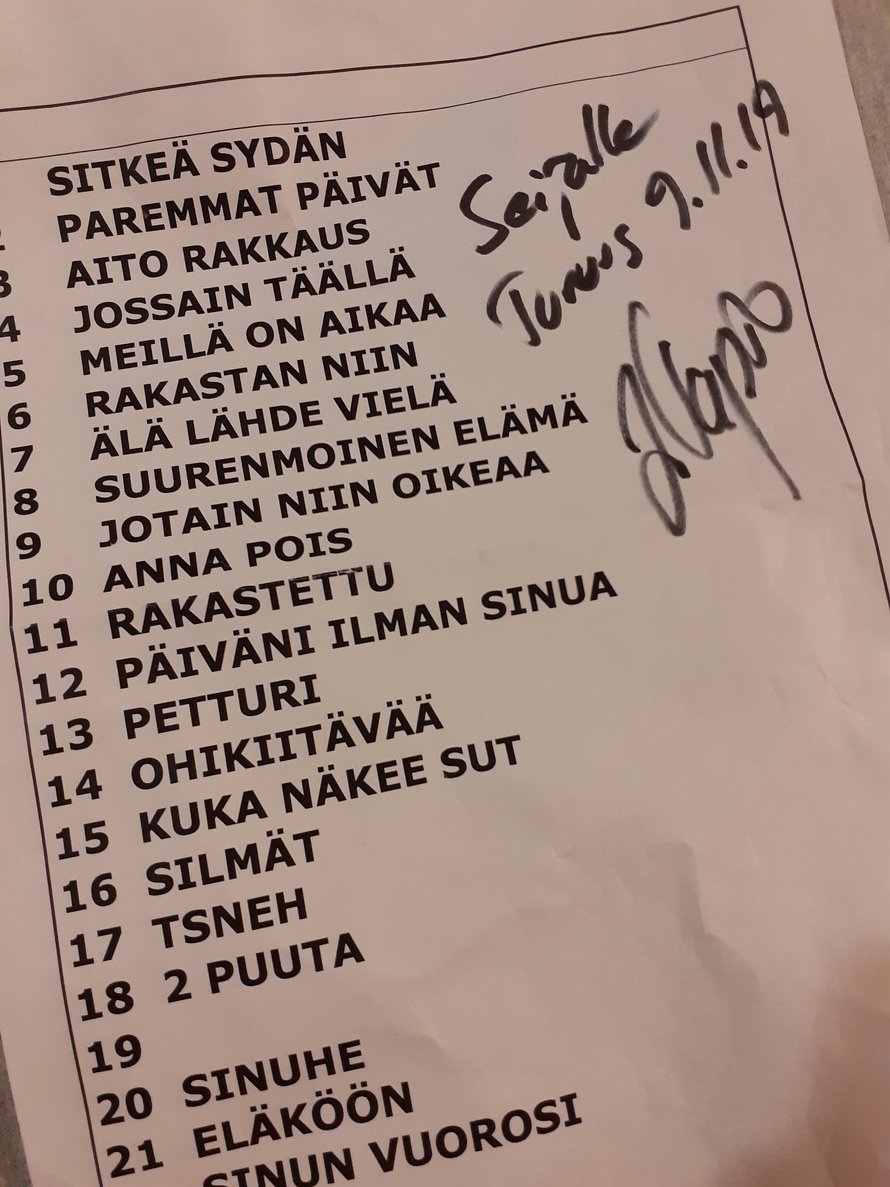 SITKEÄ SYDÄN
2 PAREMMAT PÄIVÄT
3 AITO RAKKAUS
4 JOSSAIN TÄÄLLÄ
5 MEILLÄ ON AIKAA
6 RAKASTAN NIIN
7 ÄLÄ LÄHDE VIELÄ
8 SUURENMOINEN ELÄMÄ
9 JOTAIN NIIN OIKEAA
10 ANNA POIS
11 RAKASTETTU
12 PÄIVÄNI ILMAN SINUA
13 PETTURI
14 OHIKIITÄVÄÄ
15 KUKA NÄKEE SUT
16 SILMÄT
17 TSNEH
18 2 PUUTA
19
20 SINUHE
21 ELÄKÖÖN
SINUN VUOROSI
Seijalle
9.11.19